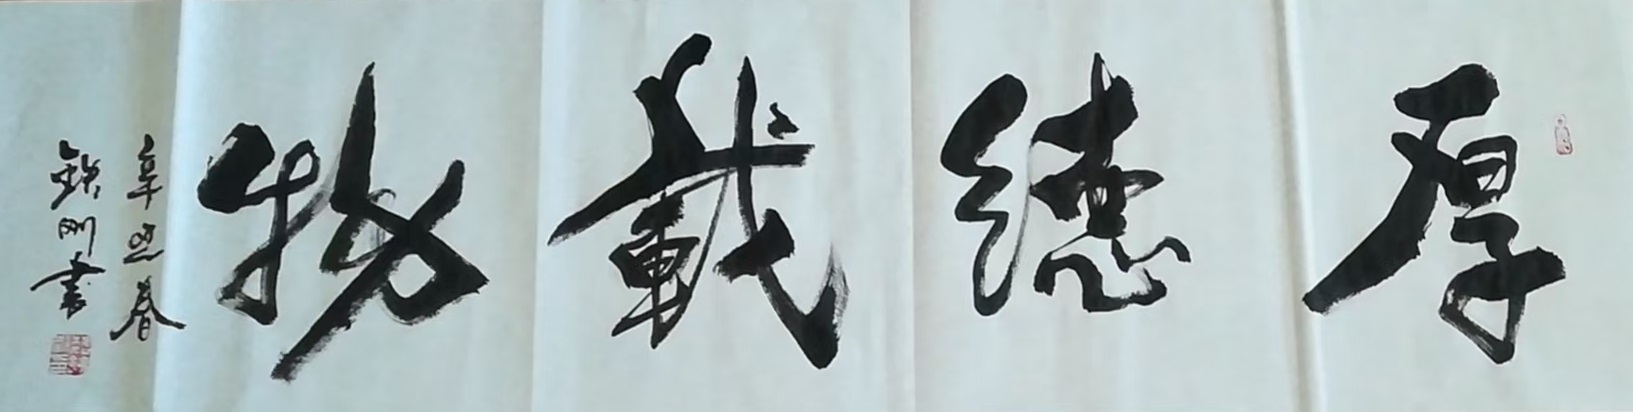 厚德載物
辛丑春
鐵刚書